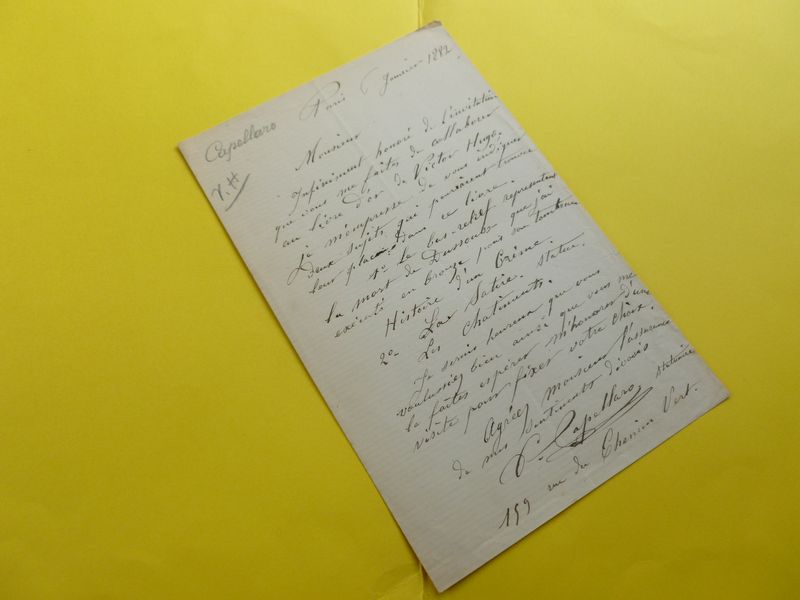 Capellaro
V. H
Paris 6 Janvier 1882
Monsieur
Infiniment honoré de l'invitation
que vous me faites de collaborer
au livre d'or de Victor Hugo.
Je m'empresse de vous indiquer
deux sujets qui pourraient trouver
leur place dans ce livre.
1º Le bas-relief représentant
la mort de Dussoubs que j'ai
exécuté en bronze pour son tombeau
Histoire d'un Crime
2º La Satire. statue.
Les Chatiments.
Je serais heureux que vous
voulussiez bien ainsi que vous me
le faites espérer m'honorer d'une
visite pour fixer votre choix.
Agréez monsieur l'assurance
de mes sentiments dévoués
Capellaro statuaire
159 rue du Chemin Vert.